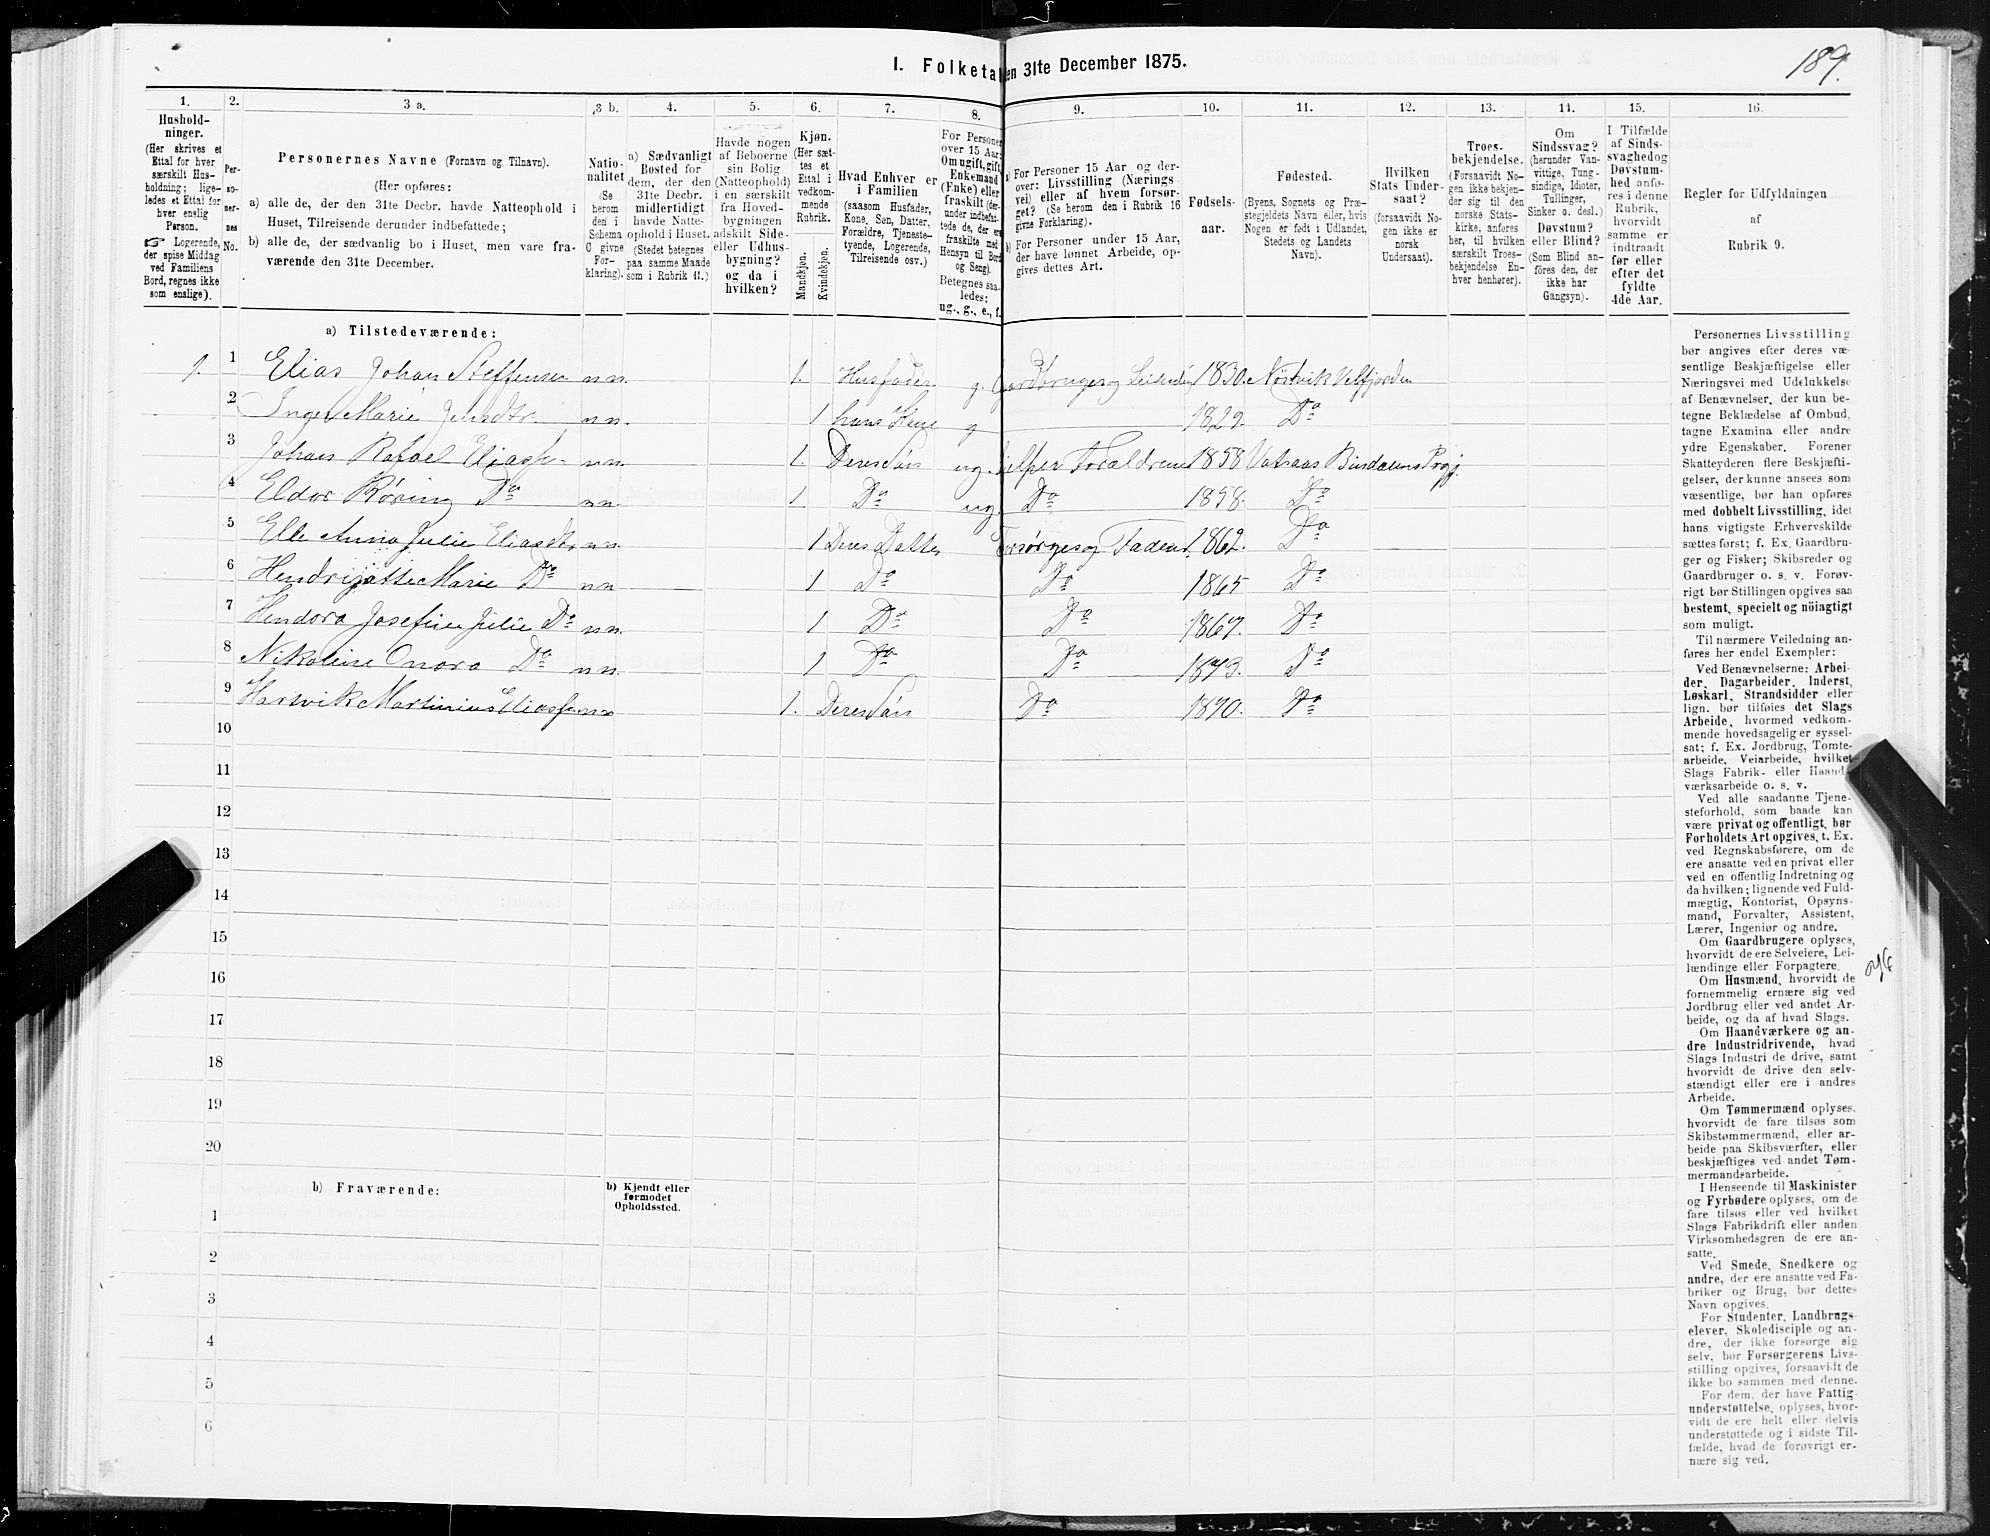 189.
1. Folketal den 31te December 1875.
1. 2. 3 a. 3 b. 4. 5. 6. 7. 8. 9. 10. 11. 12. 13. 14. 15. 16.
Hushold-
ninger.
(Her skrives et
Ettal for hver
særskilt Hus-
holdning; lige-
ledes et Ettal for
hver enslig
Person.
☞ Logerende,
der spise Middag
ved Familiens
Bord, regnes ikke
som enslige).
Per-
so-
ner-
nes
No.
Personernes Navne (Fornavn og Tilnavn).
(Her opføres:
a) alle de, der den 31te Decbr. havde Natteophold i
Huset, Tilreisende derunder indbefattede;
b) alle de, der sædvanlig bo i Huset, men vare fra-
værende den 31te December.
Natio-
nalitet
(Se
herom
den i
Schema
C givne
For-
klaring).
a) Sædvanligt
Bosted for
dem, der den
31te Decbr.
midlertidigt
havde Natte-
ophold i Huset.
(Stedet betegnes
paa samme Maade
som i Rubrik 11.)
Havde nogen
af Beboerne
sin Bolig
(Natteophold)
i en særskilt
fra Hoved-
bygningen
adskilt Side-
eller Udhus-
bygning?
og da i
hvilken?
Kjøn.
(Her sæt-
tes et
Ettal i
vedkom-
mende
Rubrik.
Mandkjøn.
Kvindekjøn.
Hvad Enhver er
i Familien
(saasom Husfader,
Kone, Søn, Datter,
Forældre, Tjeneste-
tyende, Logerende,
Tilreisende osv.)
For Personer
over 15 Aar:
Om ugift, gift,
Enkemand
(Enke) eller
fraskilt (der-
under indbefat-
tede de, der ere
fraskilte med
Hensyn til Bord
og Seng).
Betegnes saa-
ledes:
ug., g., e., f.
a) For Personer 15 Aar og der-
over: Livsstilling (Nærings-
vei) eller af hvem forsør-
get? (Se herom den i Rubrik 16
givne Forklaring).
b) For Personer under 15 Aar,
der have lønnet Arbeide, op-
gives dettes Art.
Fødsels-
aar.
Fødested.
(Byens, Sognets og Præ-
stegjeldets Navn eller, hvis
Nogen er født i Udlandet,
Stedets og Landets
Navn).
Hvilken
Stats Under-
saat?
(forsaavidt No-
gen ikke er
norsk
Undersaat).
Troes-
bekjendelse.
(Forsaavidt No-
gen ikke bekjen-
der sig til den
norske Stats-
kirke, anføres
her, til hvilken
særskilt Troes-
bekjendelse En-
hver henhører).
Om
Sindssvag?
(herunder Van-
vittige, Tung-
sindige, Idioter,
Tullinger,
Sinker o. desl.)
Døvstum?
eller Blind?
(Som Blind an-
føres den, der
ikke har
Gangsyn).
I Tilfælde
af Sinds-
svaghed og
Døvstum-
hed anfø-
res i denne
Rubrik,
hvorvidt
samme er
indtraadt
før eller
efter det
fyldte
4de Aar.
Regler for Udfyldningen
af
Rubrik 9.
a) Tilstedeværende:
1. 1 Elias Johan Steffensen n n. 1. Husfader g. Gardbruger og Leilending 1830. Nørvik Velfjorden
2 Inger Marie Jensdtr. n n. 1 hans Kone g 1829. Do
3 Johan Rafael Eliass. n n. 1. Deres Søn ug. hjelper Foraldrene 1858 Vatsaas Bindalens Prgj.
4 Eldor Røring Do n n. 1 Do ug. Do 1858. Do
5 Elle Anna Julie Eliasdtr n n. 1 Deres Datter Forsørges og Faderen 1862. Do
6 Hendrijette Marie Do n n 1 Do Do 1865 Do
7 Hendora Josefine Julie Do n n. 1 Do Do 1867. Do
8 Nikoline Onora Do n n. 1 Do Do 1873. Do
9 Hartvik Martinius Eliass. n n 1. Deres Søn Do 1870. Do
10
11
12
13
14
15
16
17
18
19
20
b) Fraværende:
b) Kjendt eller
formodet
Opholdssted.
1
2
3
4
5
6
Personernes Livsstilling
bør angives efter deres væ-
sentlige Beskjæftigelse eller
Næringsvei med Udelukkelse
af Benævnelser, der kun be-
tegne Beklædelse af Ombud,
tagne Examina eller andre
ydre Egenskaber. Forener
Skatteyderen flere Beskjæfti-
gelser, der kunne ansees som
væsentlige, bør han opføres
med dobbelt Livsstilling, idet
hans vigtigste Erhvervskilde
sættes først; f. Ex. Gaardbru-
ger og Fisker; Skibsreder og
Gaardbruger o. s. v. Forøv-
rigt bør Stillingen opgives saa
bestemt, specielt og nöiagtigt
som muligt.
Til nærmere Veiledning an-
føres her endel Exempler:
Ved Benævnelserne: Arbei-
der, Dagarbeider, Inderst,
Løskarl, Strandsidder eller
lign. bør tilføies det Slags
Arbeide, hvormed vedkom-
mende hovedsagelig er syssel-
sat; f. Ex. Jordbrug, Tomte-
arbeide, Veiarbeide, hvilket
Slags Fabrik- eller Haand-
værksarbeide o. s. v.
Ved alle saadanne Tjene-
steforhold, som baade kan
være privat og offentligt, bør
Forholdets Art opgives, t. Ex.
ved Regnskabsførere, om de
ere ansatte ved en privat eller
ved en offentlig Indretning og
da hvilken; lignende ved Fuld-
mægtig, Kontorist, Opsyns-
mand, Forvalter, Assistent,
Lærer, Ingeniør og andre.
Om Gaardbrugere oplyses,
hvorvidt de ere Selveiere, Lei-
lændinge eller Forpagtere.
Om Husmænd, hvorvidt de
fornemmelig ernære sig ved
Jordbrug eller ved andet Ar-
beide, og da af hvad Slags.
Om Haandværkere og an-
dre Industridrivende, hvad
Slags Industri de drive, samt
hvorvidt de drive den selv-
stændigt eller ere i andres
Arbeide.
Om Tømmermænd oplyses,
hvorvidt de fare tilsøs som
Skibstømmermænd, eller ar-
beide paa Skibsværfter, eller
beskjæftiges ved andet Tøm-
mermandsarbeide.
I Henseende til Maskinister
og Fyrbødere oplyses, om de
fare tilsøs eller ved hvilket
Slags Fabrikdrift eller anden
Virksomhedsgren de ere an-
satte.
Ved Smede, Snedkere og
andre, der ere ansatte ved Fa-
briker og Brug, bør dettes
Navn opgives.
For Studenter, Landbrugs-
elever, Skoledisciple og an-
dre, der ikke forsørge sig
selv, bør Forsørgerens Livs-
stilling opgives, forsaavidt de
ikke bo sammen med denne.
For dem, der have Fattig-
understøttelse, oplyses, hvor-
vidt de ere helt eller delvis
understøttede og i sidste Til-
fælde, hvad de forøvrigt er-
nære sig ved.